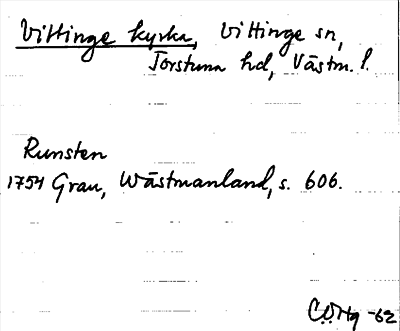 Vittinge kyrka, Vittinge sn,
Torstuna hd, Västm. l.
Runsten
1754 Grau, Wästmanland, s. 606.
-62